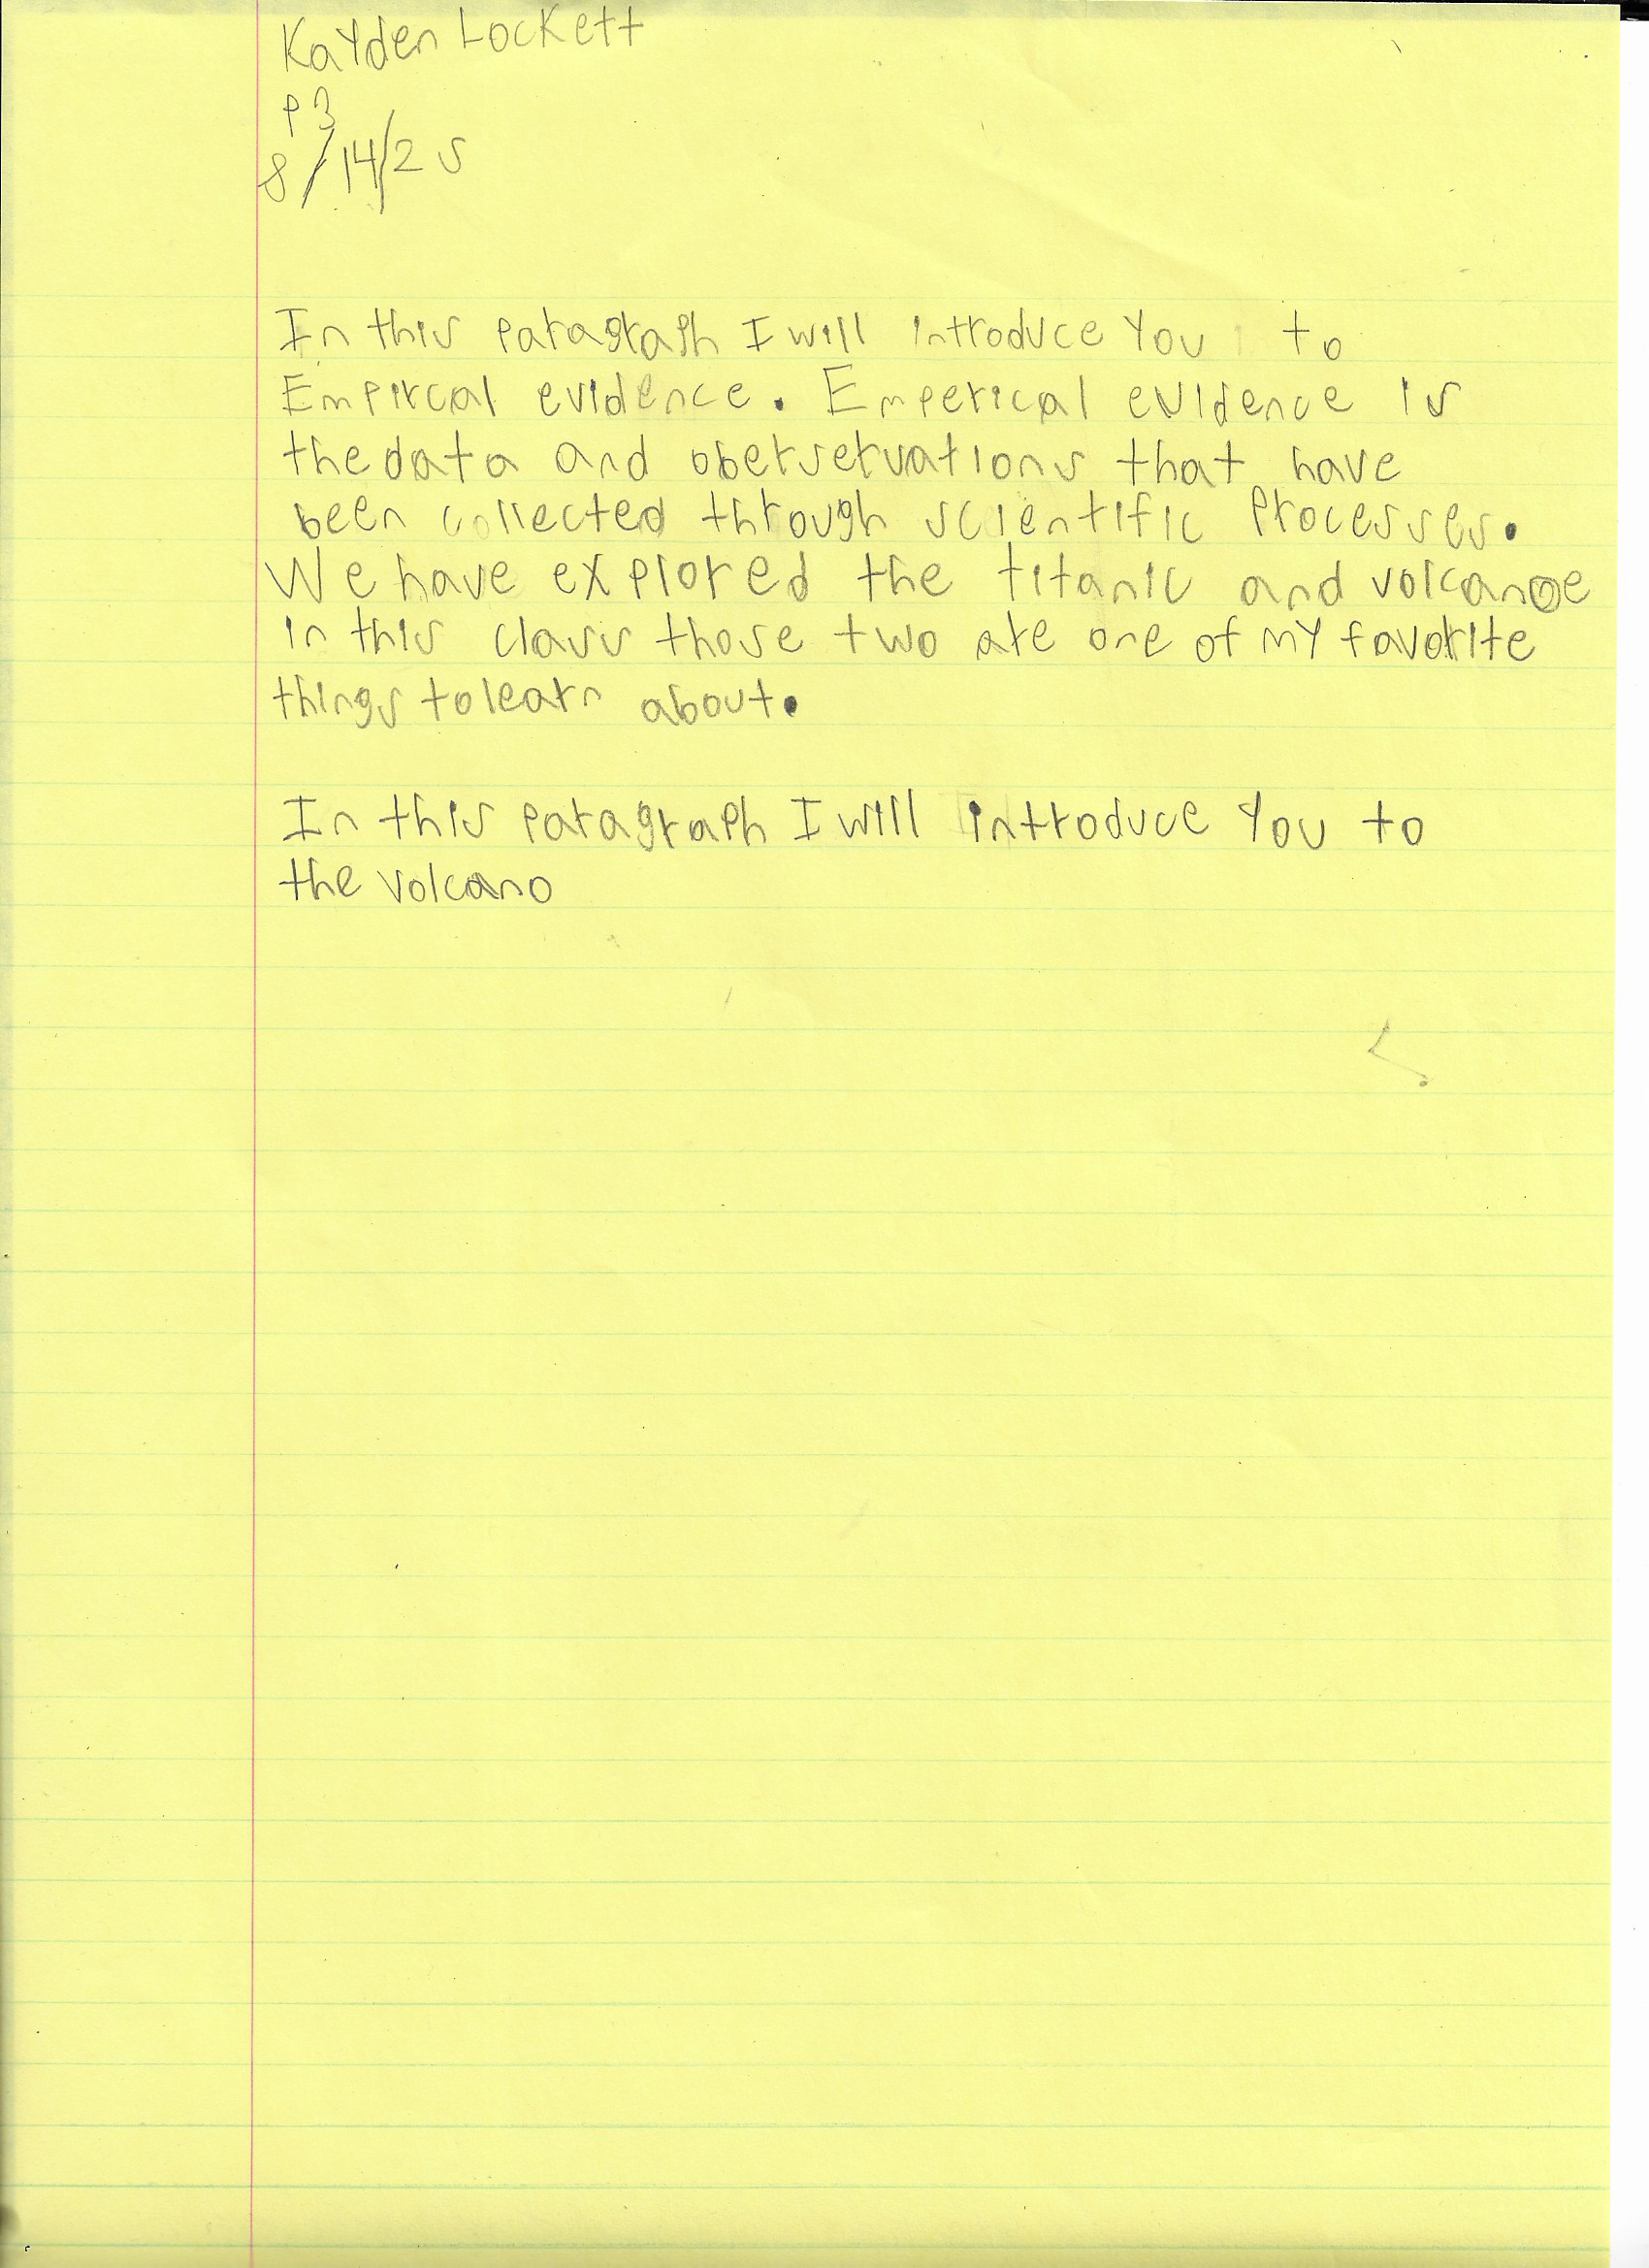 Kayden Lockett
P3
8/14/25
In this paragraph I will introduce You to
Empircal evidence. Emperical evidence is
the data and oberservations that have
been collected through scientific Processes.
We have explored the titanic and volcanoe
in this class those two are one of my favorite
things to learn about.
In this paragraph I will introduce You to
the volcano